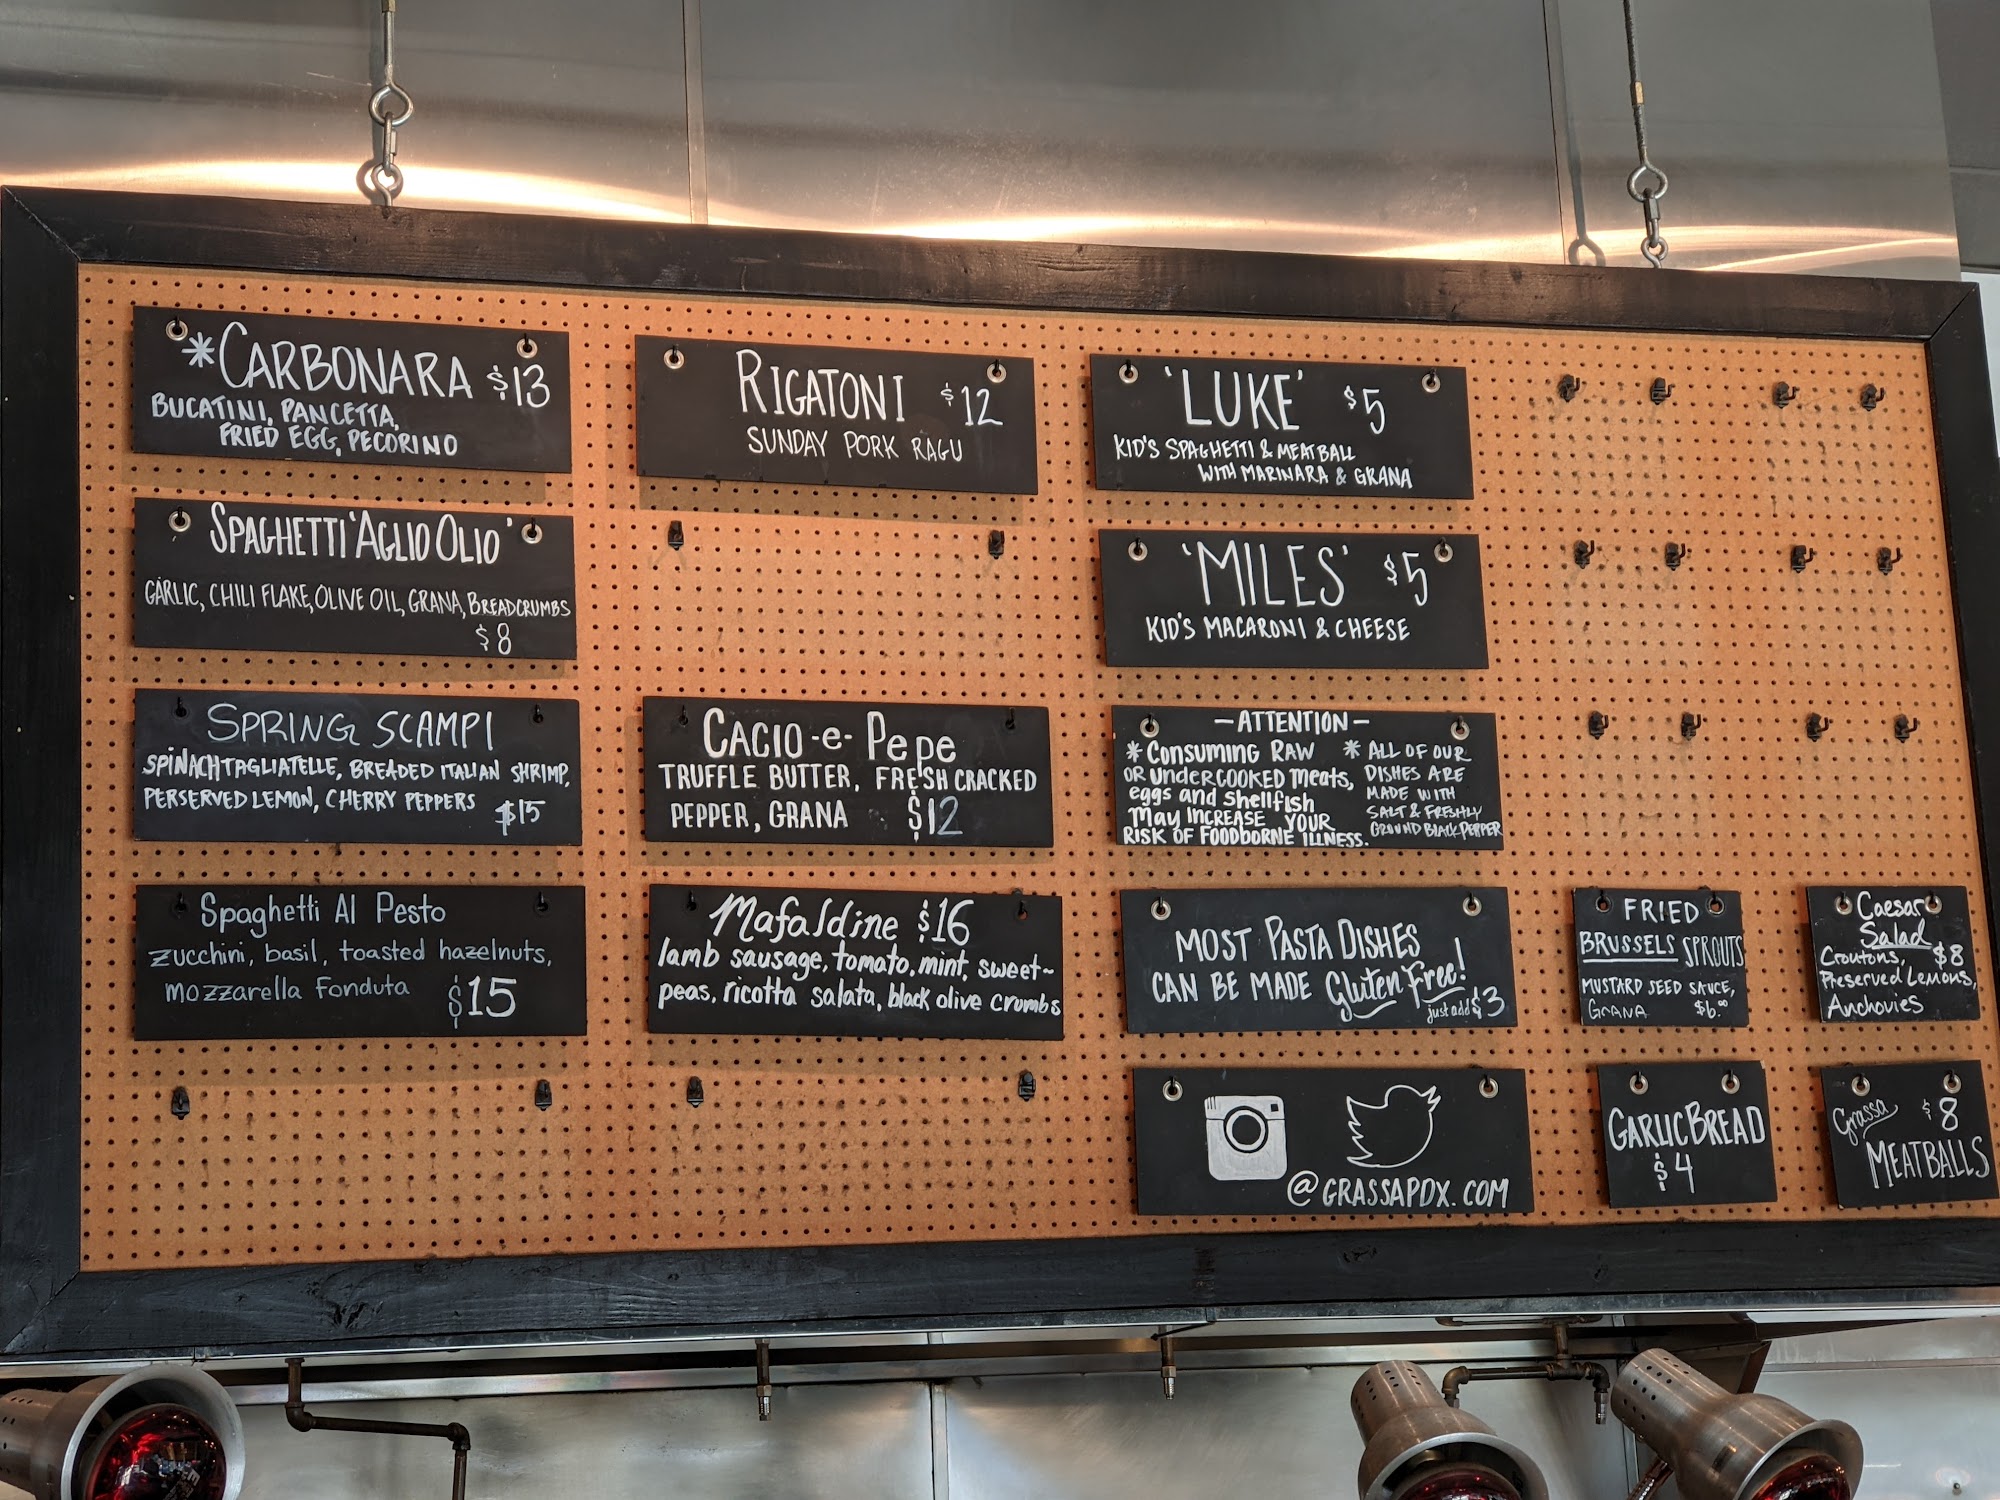 *CARBONARA $13
BUCATINI, PANCETTA,
FRIED EGG, PECORINO
SPAGHETTI 'AGLIO OLIO'
GARLIC, CHILI FLAKE, OLIVE OIL, GRANA, BREADCRUMBS
$8
SPRING SCAMPI
SPINACH TAGLIATELLE, BREADED ITALIAN SHRIMP,
PERSERVED LEMON, CHERRY PEPPERS $15
Spaghetti Al Pesto
zucchini, basil, toasted hazelnuts,
mozzarella fonduta $15
RIGATONI $12
SUNDAY PORK RAGU
CACIO -e- Pepe
TRUFFLE BUTTER, FRESH CRACKED
PEPPER, GRANA $12
Mafaldine $16
lamb sausage, tomato, mint, sweet~
peas, ricotta salata, black olive crumbs
'LUKE' $5
KID'S SPAGHETTI & MEATBALL
WITH MARINARA & GRANA
'MILES' $5
KID'S MACARONI & CHEESE
-ATTENTION-
* Consuming RAW
OR UNDERCOOKED meats,
eggs and Shellfish
May INCREASE YOUR
RISK OF FOODBORNE ILLNESS.
* ALL OF OUR
DISHES ARE
MADE WITH
SALT & FRESHLY
GROUND BLACK PEPPER
MOST PASTA DISHES
CAN BE MADE Gluten Free!
just add $3
@GRASSAPDX.COM
FRIED
BRUSSELS SPROUTS
MUSTARD SEED SAUCE,
GRANA $6.00
Caesar
Salad
Croutons, $8
Preserved Lemons,
Anchovies
GARLIC BREAD
$4
Grassa $8
MEATBALLS